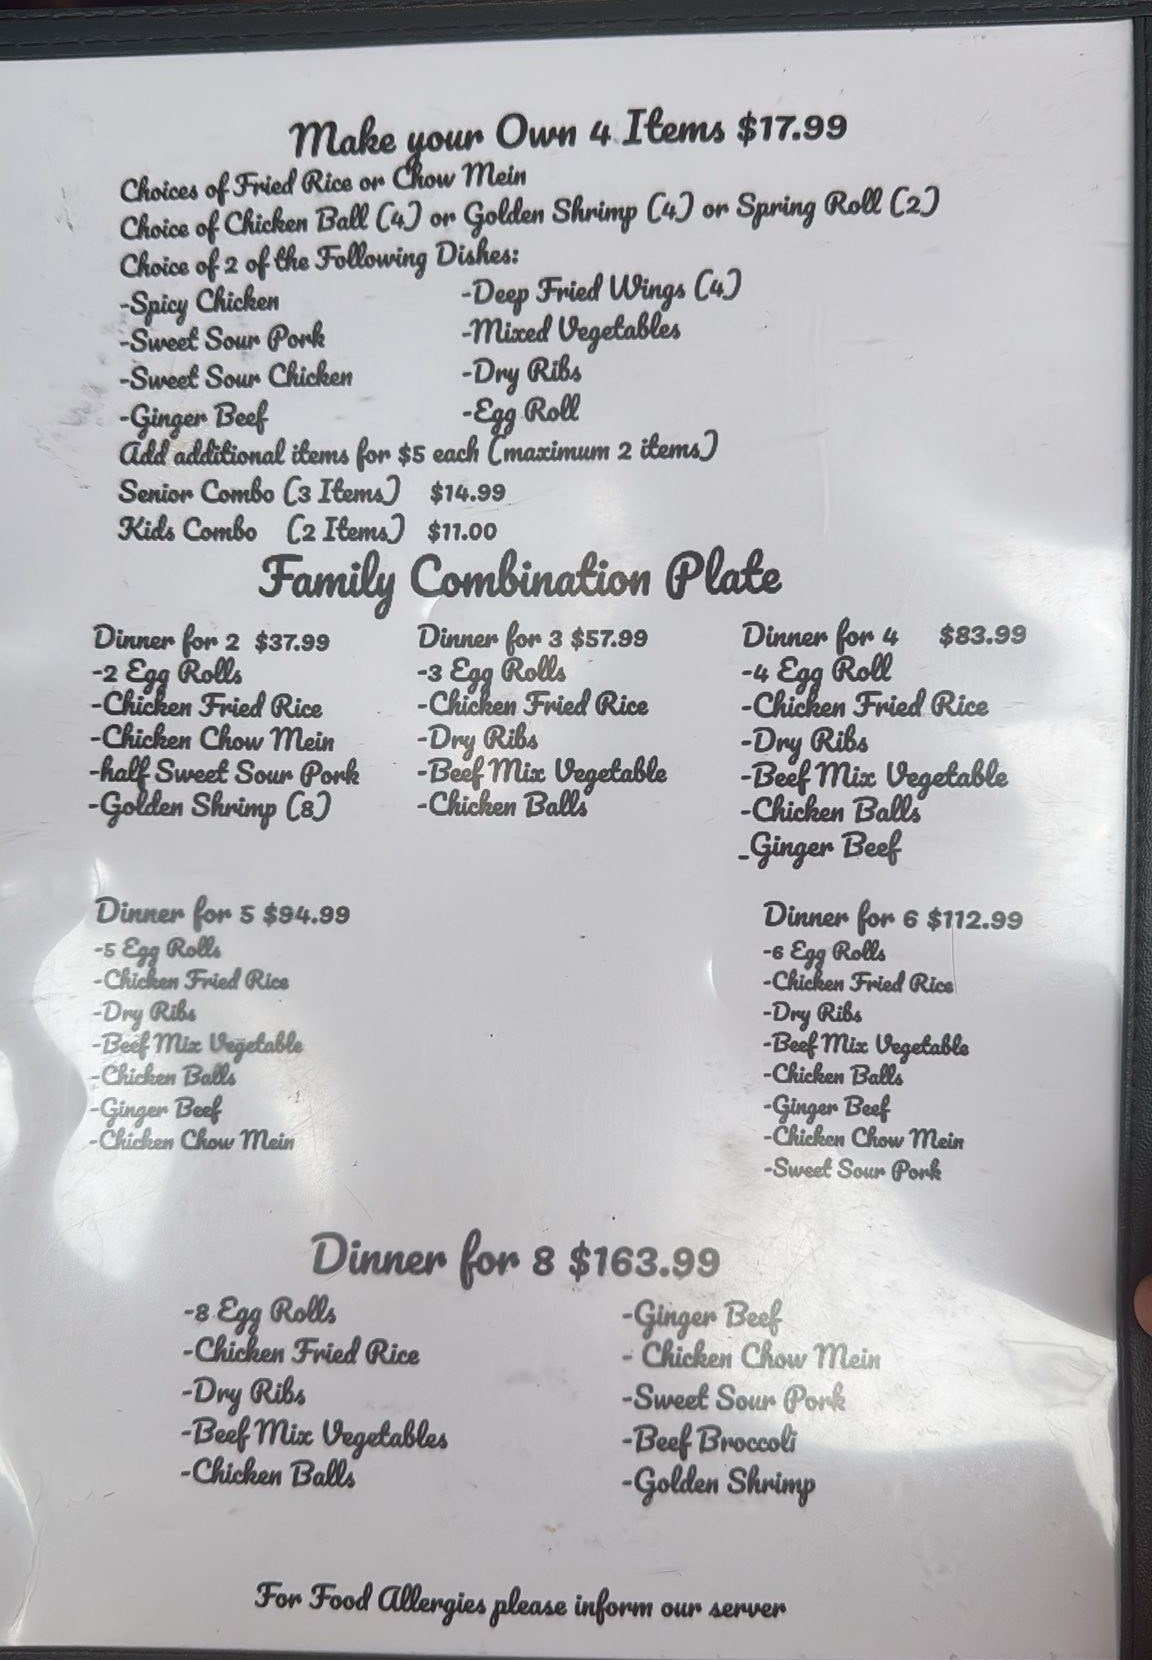 Make your Own 4 Items $17.99
Choices of Fried Rice or Chow Mein
Choice of Chicken Ball (4) or Golden Shrimp (4) or Spring Roll (2)
Choice of 2 of the Following Dishes:
-Spicy Chicken
-Sweet Sour Pork
-Sweet Sour Chicken
-Ginger Beef
-Deep Fried Wings (4)
-Mixed Vegetables
-Dry Ribs
-Egg Roll
Add additional items for $5 each (maximum 2 items)
Senior Combo (3 Items) $14.99
Kids Combo (2 Items) $11.00
Family Combination Plate
Dinner for 2 $37.99
-2 Egg Rolls
-Chicken Fried Rice
-Chicken Chow Mein
-half Sweet Sour Pork
-Golden Shrimp (8)
Dinner for 3 $57.99
-3 Egg Rolls
-Chicken Fried Rice
-Dry Ribs
-Beef Mix Vegetable
-Chicken Balls
Dinner for 4 $83.99
-4 Egg Roll
-Chicken Fried Rice
-Dry Ribs
-Beef Mix Vegetable
-Chicken Balls
_Ginger Beef
Dinner for 5 $94.99
-5 Egg Rolls
-Chicken Fried Rice
-Dry Ribs
-Beef Mix Vegetable
-Chicken Balls
-Ginger Beef
-Chicken Chow Mein
Dinner for 6 $112.99
-6 Egg Rolls
-Chicken Fried Rice
-Dry Ribs
-Beef Mix Vegetable
-Chicken Balls
-Ginger Beef
-Chicken Chow Mein
-Sweet Sour Pork
Dinner for 8 $163.99
-8 Egg Rolls
-Chicken Fried Rice
-Dry Ribs
-Beef Mix Vegetables
-Chicken Balls
-Ginger Beef
- Chicken Chow Mein
-Sweet Sour Pork
-Beef Broccoli
-Golden Shrimp
For Food Allergies please inform our server